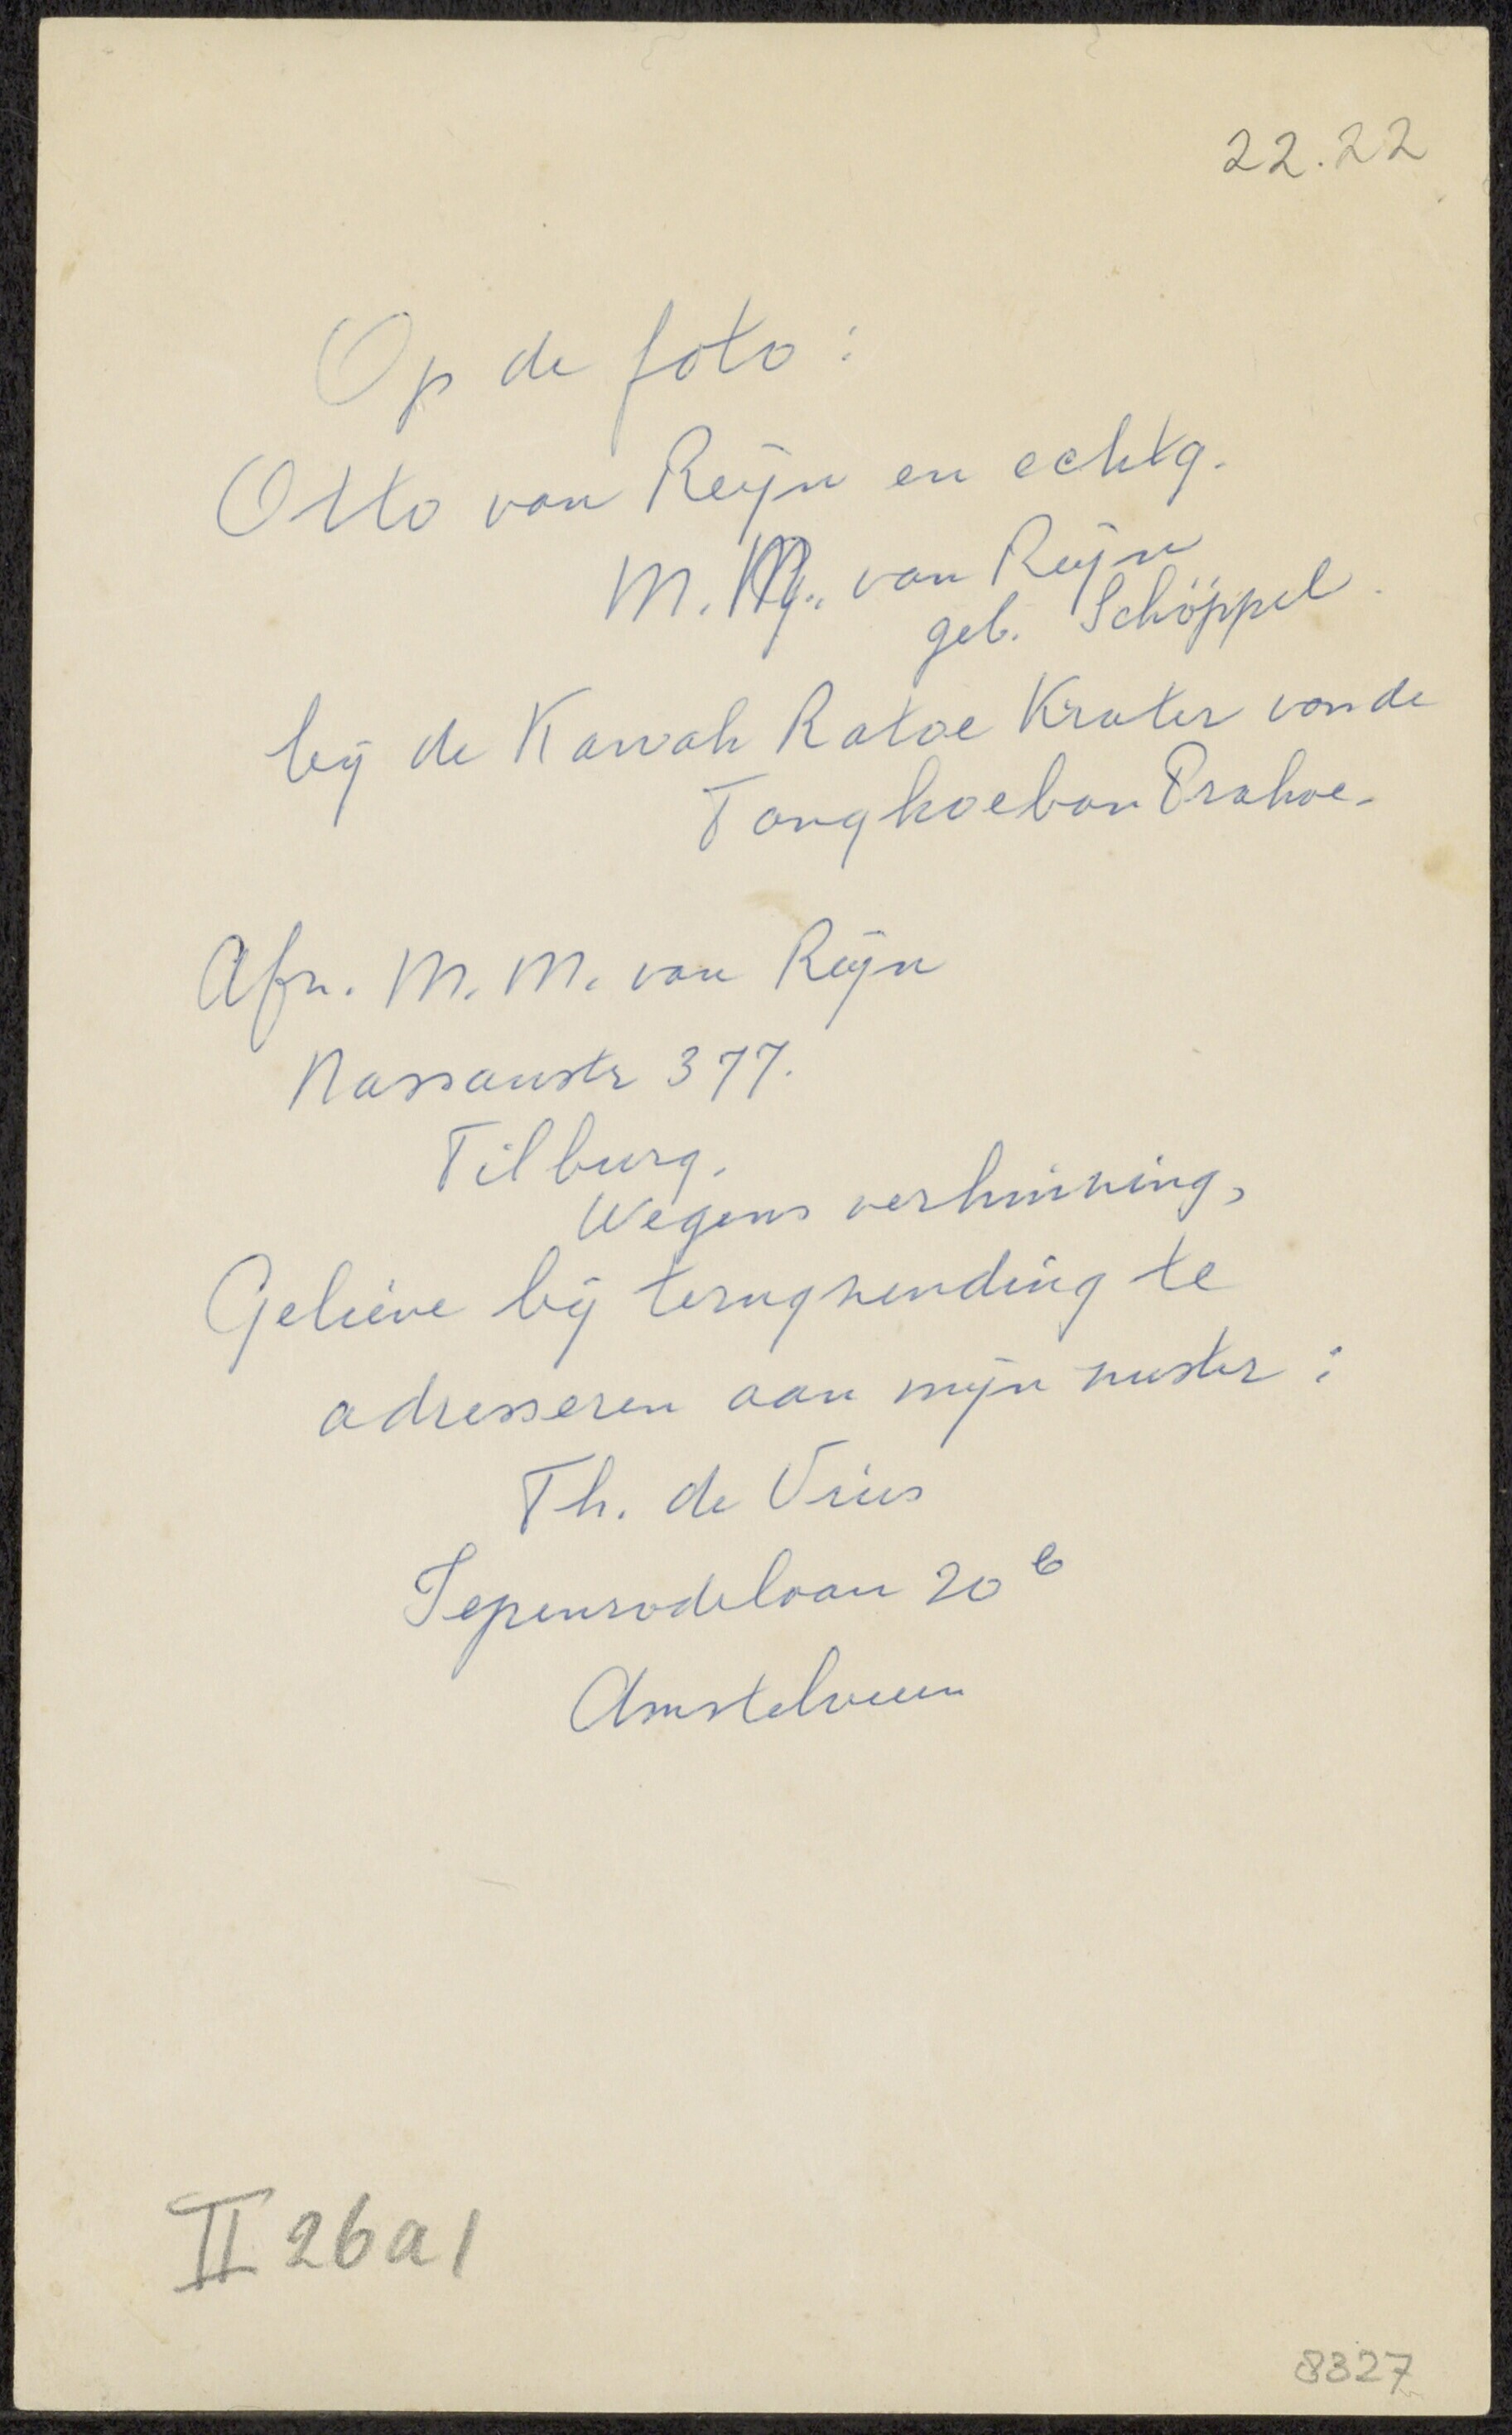 22.22
Op de foto:
Otto van Reijn en echtg.
M. M. van Reijn
geb. Schöppel.
bij de Kawah Ratoe Krater van de
Tangkoeban Prahoe.
Afz. M. M. van Reijn
Nassaustr 377.
Tilburg.
Wegens verhuizing,
Gelieve bij terugzending te
adresseren aan mijn zuster:
Th. de Vries
Iepenrodelaan 20 b
Amstelveen
II 26a1
8327